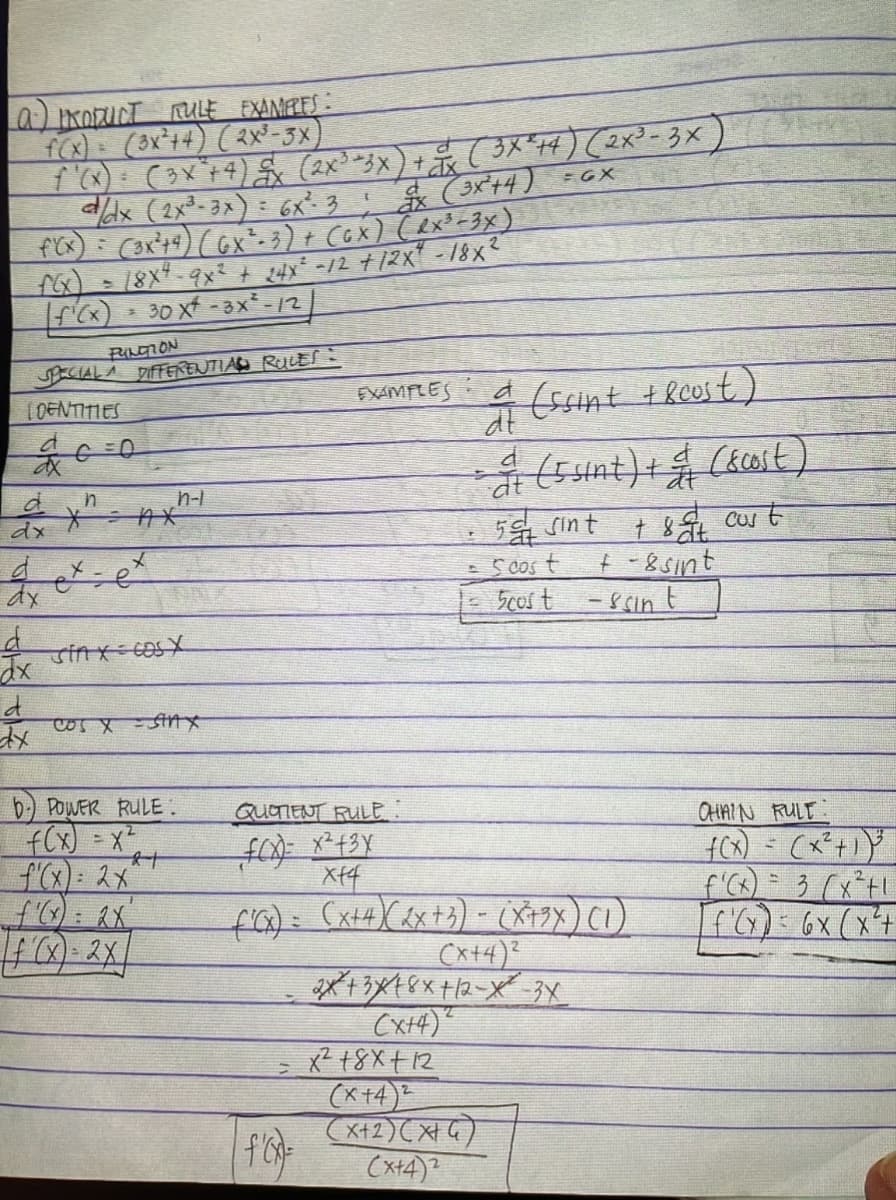 a.) PRODUCT RULE EXAMPLES:
f(x) = (3x²+4)(2x³-3x)
f'(x) = (3x²+4) d/dx (2x³-3x) + d/dx (3x²+4)(2x³-3x)
d/dx (2x³-3x) = 6x²-3 ; d/dx (3x²+4) = 6x
f'(x) = (3x²+4)(6x²-3) + (6x)(2x³-3x)
f'(x) = 18x⁴-9x² + 24x² -12 +12x⁴ -18x²
f'(x) = 30x⁴ -3x² -12
SPECIAL ^ FUNCTION DIFFERENTIAL RULES:
IDENTITIES
d/dx c = 0
d/dx xⁿ = nxⁿ⁻¹
d/dx eˣ = eˣ
d/dx sin x = cos x
d/dx cos x = sin x
EXAMPLES: d/dt (5sint + 8cost)
= d/dt (5sint) + d/dt (8cost)
= 5 d/dt sint + 8 d/dt cost
= 5cost + -8sint
= 5cost - 8sint
b.) POWER RULE:
f(x) = x²
f'(x) = 2x²⁻¹
f'(x) = 2x¹
f'(x) = 2x
QUOTIENT RULE:
f(x) = x²+3x / x+4
f'(x) = (x+4)(2x+3) - (x²+3x)(1) / (x+4)²
= 2x²+3x+8x+12-x²-3x / (x+4)²
= x²+8x+12 / (x+4)²
f'(x) = (x+2)(x+6) / (x+4)²
CHAIN RULE:
f(x) = (x²+1)³
f'(x) = 3(x²+1
f'(x) = 6x(x²+